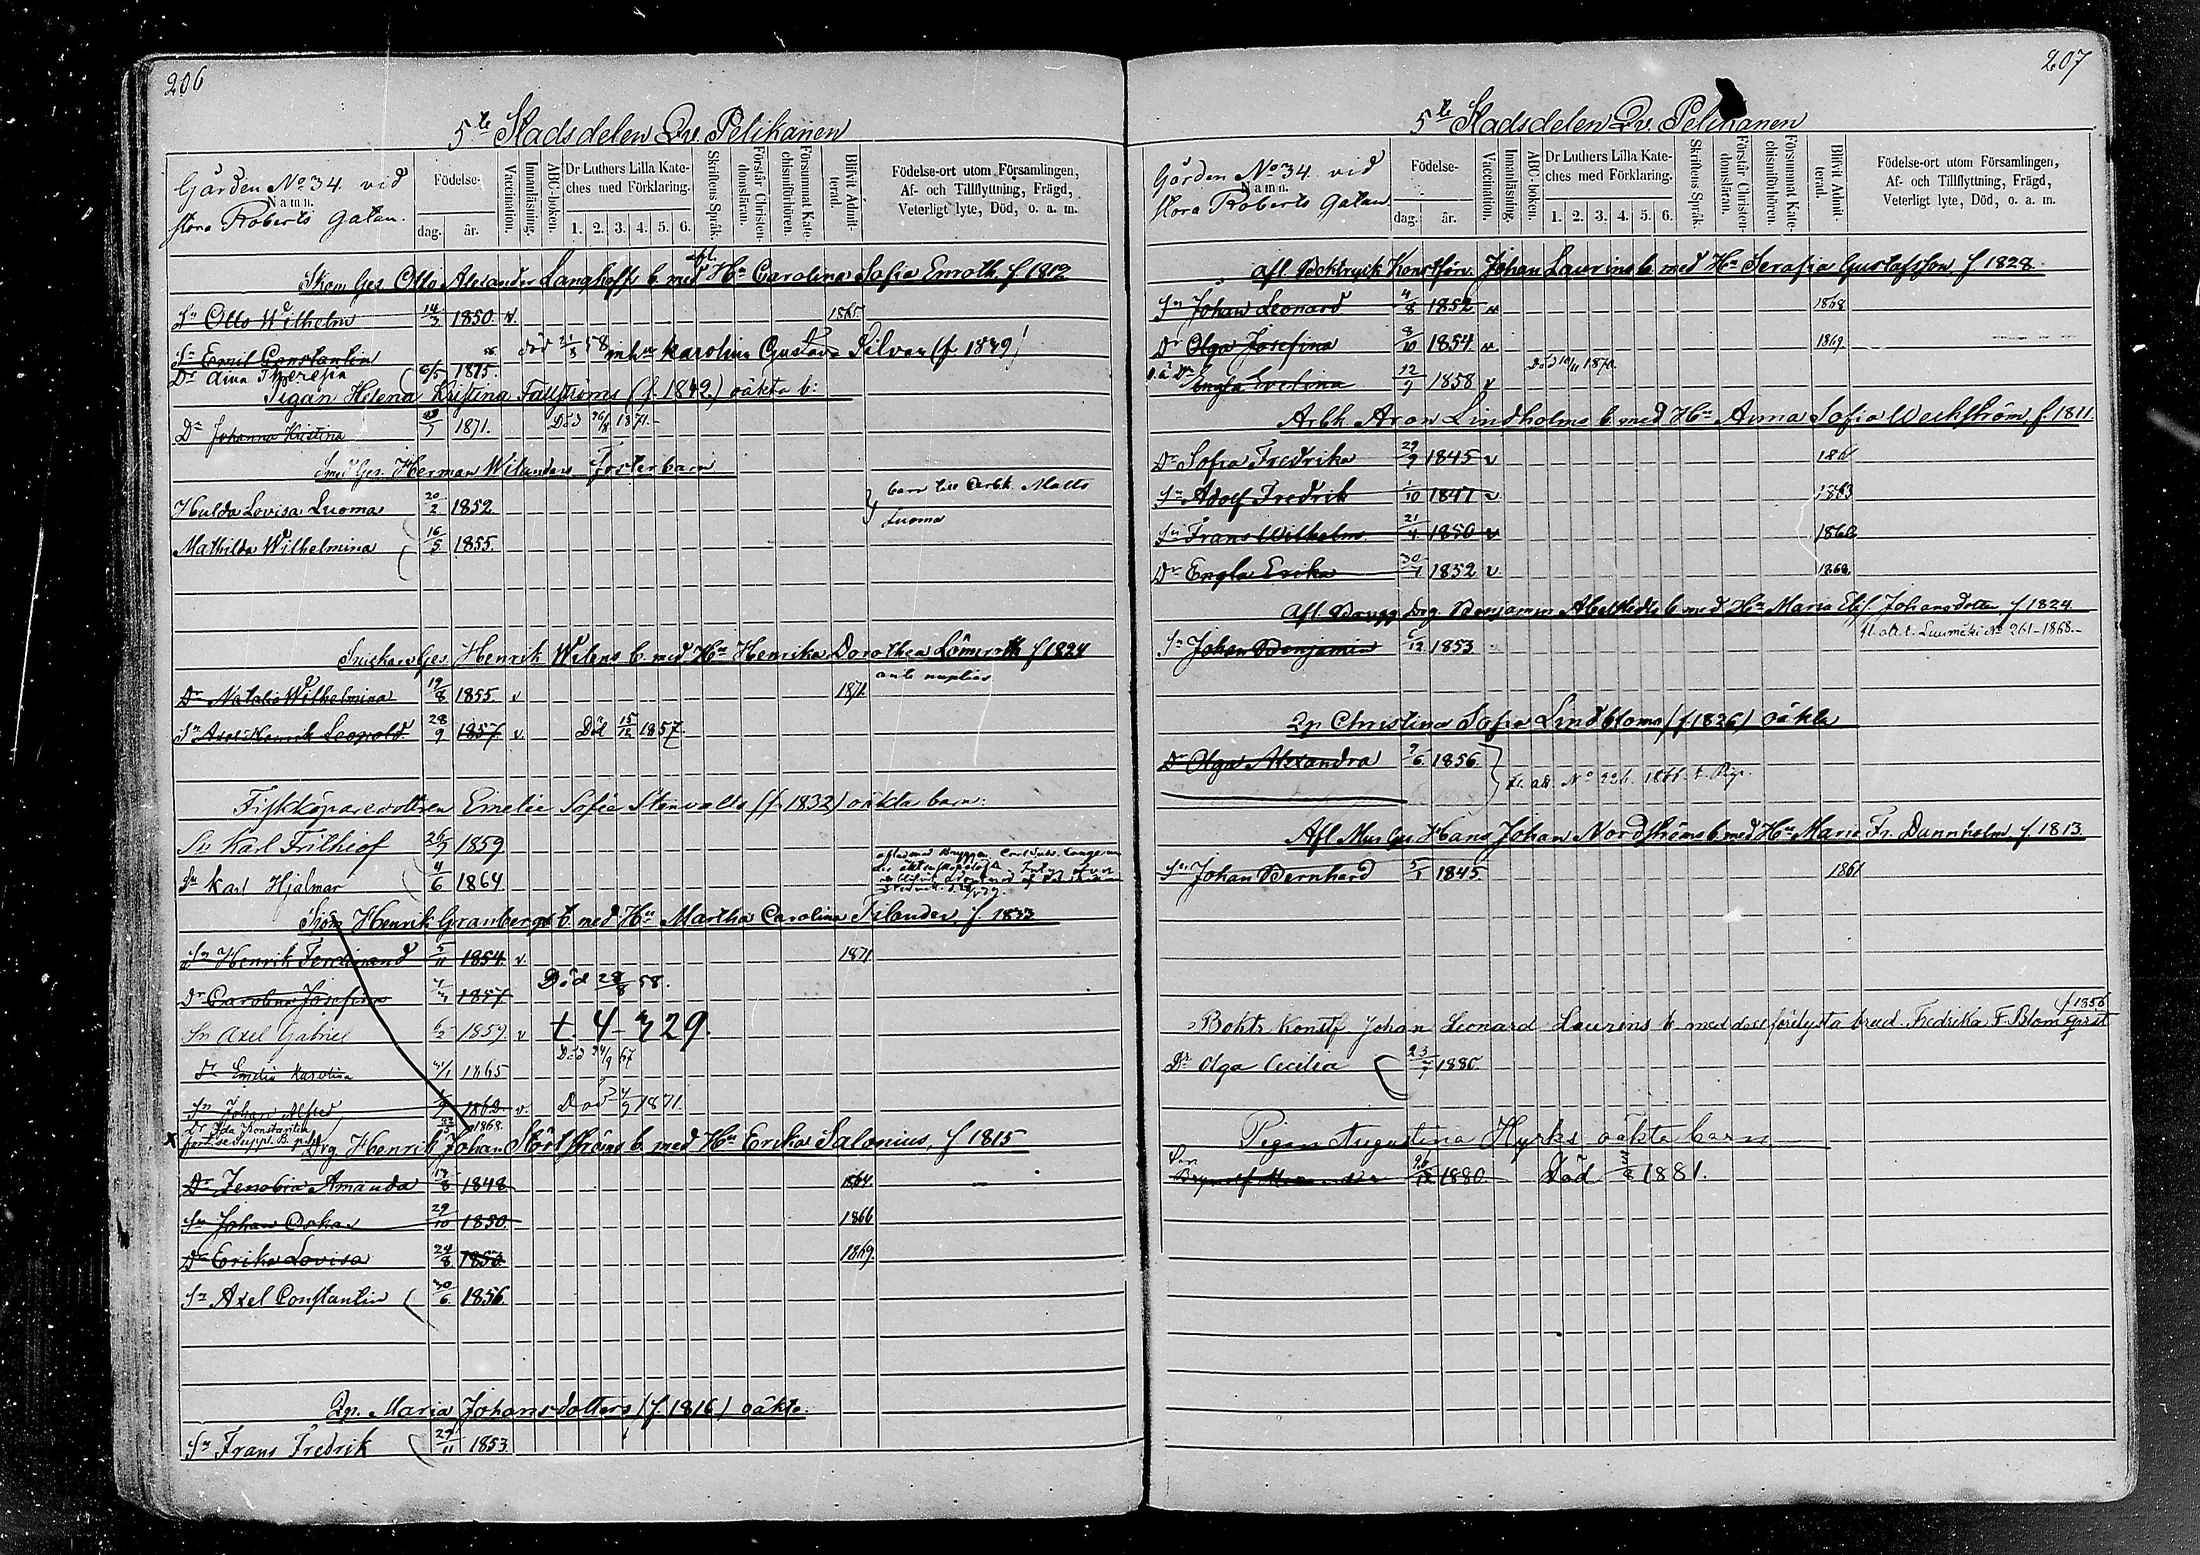 206
5te Stadsdelen Qv. Pelikanen
Gården No 34. vid
Namn.
stora Roberts gatan.
Födelse-
dag. år.
Vaccination.
Innanläsning.
ABC-boken.
Dr Luthers Lilla Kate-
ches med Förklaring.
1. 2. 3. 4. 5. 6.
Skriftens Språk.
Förstår Christen-
domsläran.
Försummat Kate-
chismiförhören.
Blifvit Admit-
terad.
Födelse-ort utom Församlingen,
Af- och Tillflyttning, Frägd,
Veterligt lyte, Död, o. a. m.
Skom Ges. Otto Alexander Langhoffs b. med afl. Hu Carolina Sofia Enroth, f 1812
Sn Otto Wilhelm 14/3 1850. v. 1865
Sn Emil Constantin Död 21/8 58 m. h. Karolina Gustava Silvan (f. 1849)
Dr Aina Theresia 6/5 1875.
Pigan Helena Kristina Fallströms (f. 1842.) oäkta b:
Dr Johanna Kristina 29/7 1871. Död 26/8 1871.
Smed Ges. Herman Wilanders Fosterbarn
Hulda Lovisa Luoma 20/2 1852 barn till Arbk. Matts
Luoma
Mathilda Wilhelmina 16/5 1855.
Snickare Ges. Henrik Wilens b. med Hu Henrika Dorothea Lömerth f 1824
Dr Natalia Wilhelmina 19/8 1855. v 1871 ante nuptias
Sn Axel Henrik Leopold. 28/9 1857. v. Död 15/12 1857.
Fiskköparedottren Emelie Sofia Stenvalls (f. 1832) oäkta barn:
Sn Karl Frithiof 26/7 1859
Sn Karl Hjalmar 4/6 1864
Sjöm Henrik Granbergs b. med Hu Martha Carolina Filander, f. 1833
Sn Henrik Ferdinand 5/11 1854. v. 1871
Dr Carolina Josefina 1857 Död 28/8 58.
Sn Axel Gabriel 6/2 1859. v †. 4-3 29.
Dr Emelia Karolina 1865 Död 24/9 67
Sn Johan Alfred 1862. v. Död 4/9 1871.
Dr Ida Konstantia 1868.
fort. se Suppl. B. p.
Drg. Henrik Johan Störtströms b. med Hu Erika Salonius, f 1815
Dr Zenobia Amanda 13/8 1848 1864.
Sn Johan Oskar 29/10 1850. 1866
Dr Erika Lovisa 24/8 1853. 1869.
Sn Axel Constantin 30/6 1856
Qp. Maria Johansdotters (f. 1816) oäkta.
Sn Frans Fredrik 29/11 1853
207
5te Stadsdelen Qv. Pelikanen
Gården No 34. vid
Namn.
stora Roberts Gatan
Födelse-
dag. år.
Vaccination.
Innanläsning.
ABC-boken.
Dr Luthers Lilla Kate-
ches med Förklaring.
1. 2. 3. 4. 5. 6.
Skriftens Språk.
Förstår Christen-
domsläran.
Försummat Kate-
chismiförhören.
Blifvit Admit-
terad.
Födelse-ort utom Församlingen,
Af- och Tillflyttning, Frägd,
Veterligt lyte, Död, o. a. m.
afl. Boktryck Konstförv. Johan Laurins b. med Hu Serafia Gustafsson, f 1828.
Sn Johan Leonard 4/8 1852 v 1868
Dr Olga Josefina 8/10 1854 v 1869
Dr Engla Evelina 12/9 1858 v Död 10/11 1870.
Arbk. Aron Lindholms b. med Hu Anna Sofia Weckström, f 1811
Dr Sofia Fredrika 29/9 1845 v 186
Sn Adolf Fredrik 1/10 1847 v 1863
Sn Frans Wilhelm 21/4 1850 v 1866
Dr Engla Erika 30/1 1852 v 1868
Afl. Brygg Drg. Benjamin Abelstedts b. med Hu Maria Elis. Johansdotter, f 1824
Sn Johan Benjamin 6/12 1853 fl. att. t. Luumäki No 261-1868.
Qp Christina Sofia Lindbloms (f 1826) oäkta
Dr Olga Alexandra 9/6 1856. fl. att. No 226. 1866. t.
Afl. Mur Ges. Hans Johan Nordströms b. med Hu Maria Fr. Dannholm, f 1813.
Sn Johan Bernhard 5/1 1845. 1861
Boktr. Konstf Johan Leonard Laurins b. med dess förelysta brud Fredrika F. Blomqvist f 1856
Dr Olga Cecilia 23/7 1880.
Pigan Augustina Hyrks oäkta barn
Son
Brynolf Alexander 26/12 1880. Död 1881.